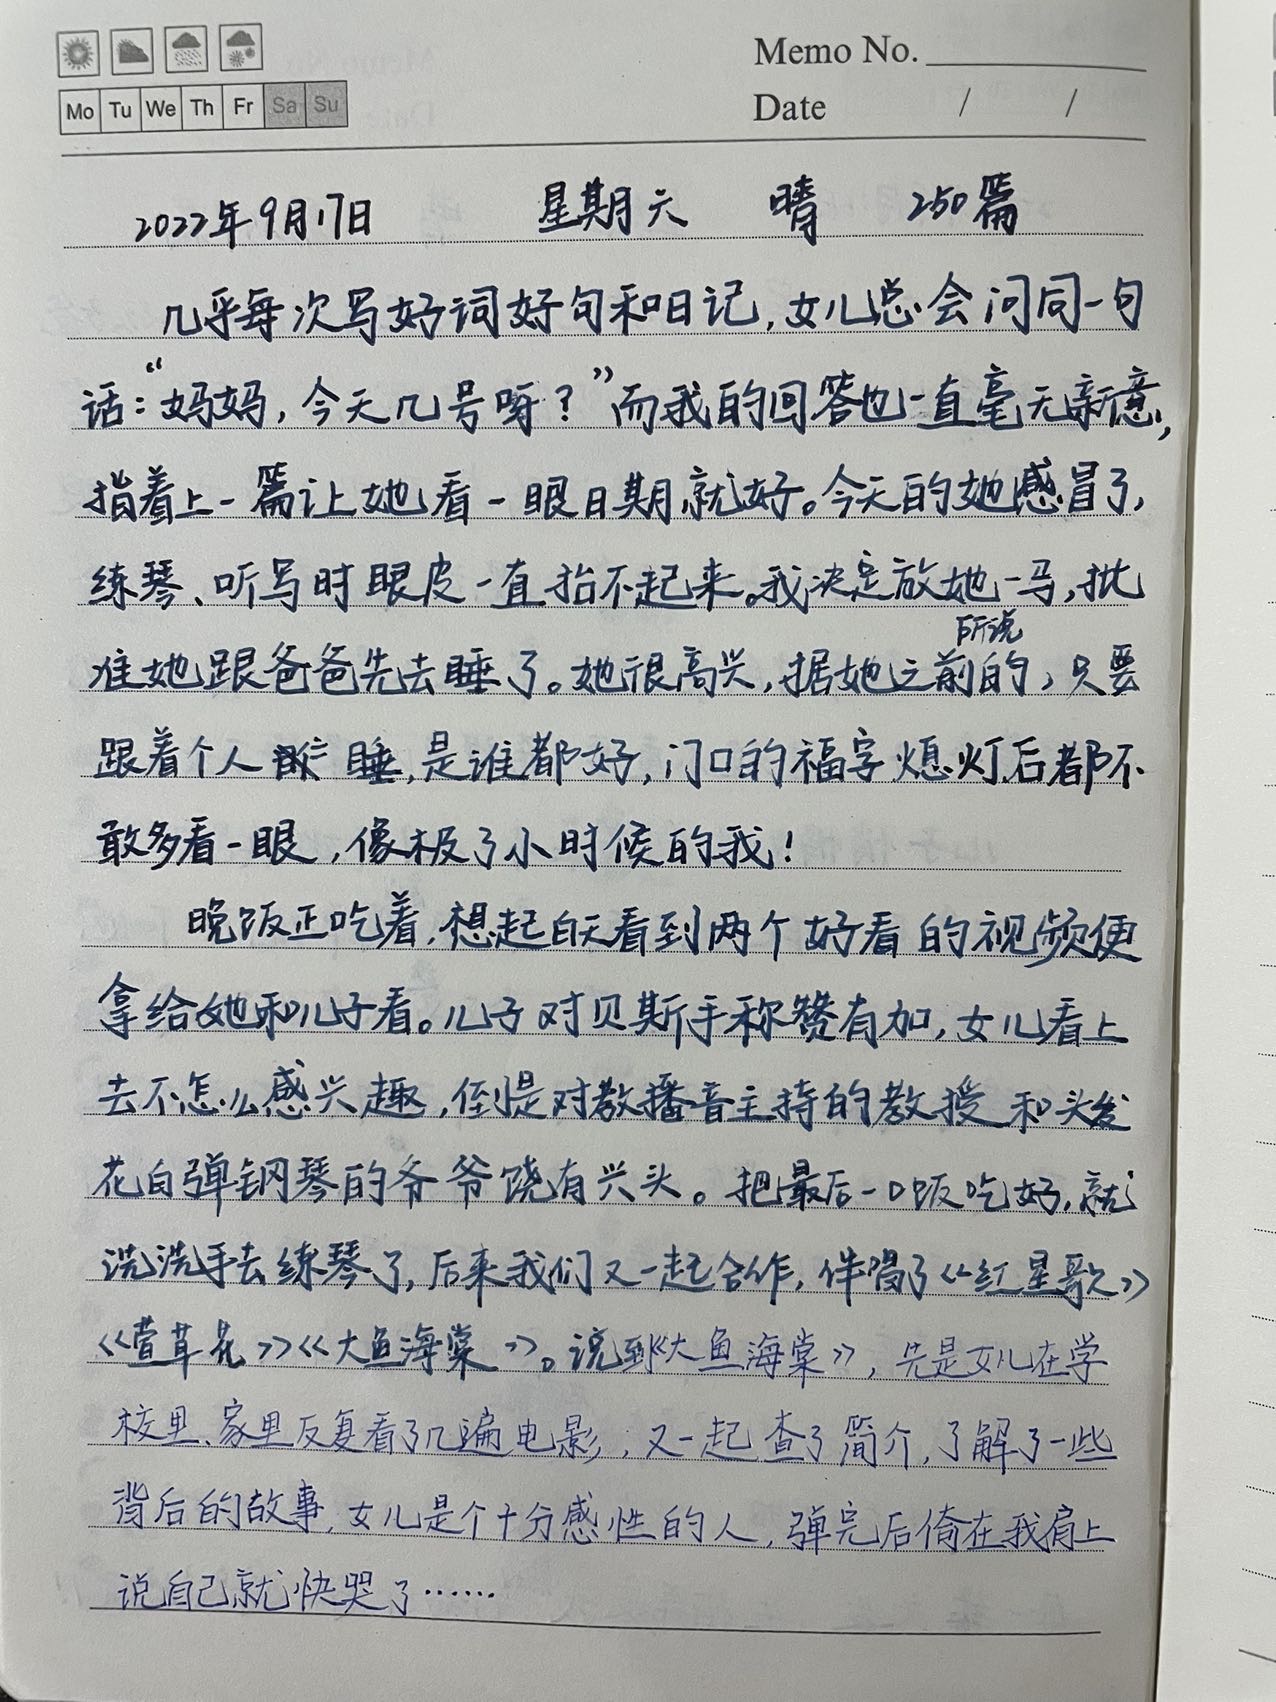 Memo No.
Mo Tu We Th Fr Sa Su
Date / /
2022年9月17日 星期六 晴 250篇
几乎每次写好词好句和日记,女儿总会问同一句
话:“妈妈,今天几号呀?”而我的回答也一直毫无新意,
指着上一篇让她看一眼日期就好。今天的她感冒了,
练琴、听写时眼皮一直抬不起来。我决定放她一马,批
准她跟爸爸先去睡了。她很高兴,据她之前所说的,只要
跟着个人睡,是谁都好,门口的福字熄灯后都不
敢多看一眼,像极了小时候的我!
晚饭正吃着,想起白天看到两个好看的视频便
拿给她和儿子看。儿子对贝斯手称赞有加,女儿看上
去不怎么感兴趣,倒是对教播音主持的教授和头发
花白弹钢琴的爷爷饶有兴头。把最后一口饭吃好,就
洗洗手去练琴了,后来我们又一起合作,伴唱了《红星歌》
《萱草花》《大鱼海棠》。说到《大鱼海棠》,先是女儿在学
校里、家里反复看了几遍电影,又一起查了简介,了解了一些
背后的故事,女儿是个十分感性的人,弹完后倚在我肩上
说自己就快哭了……